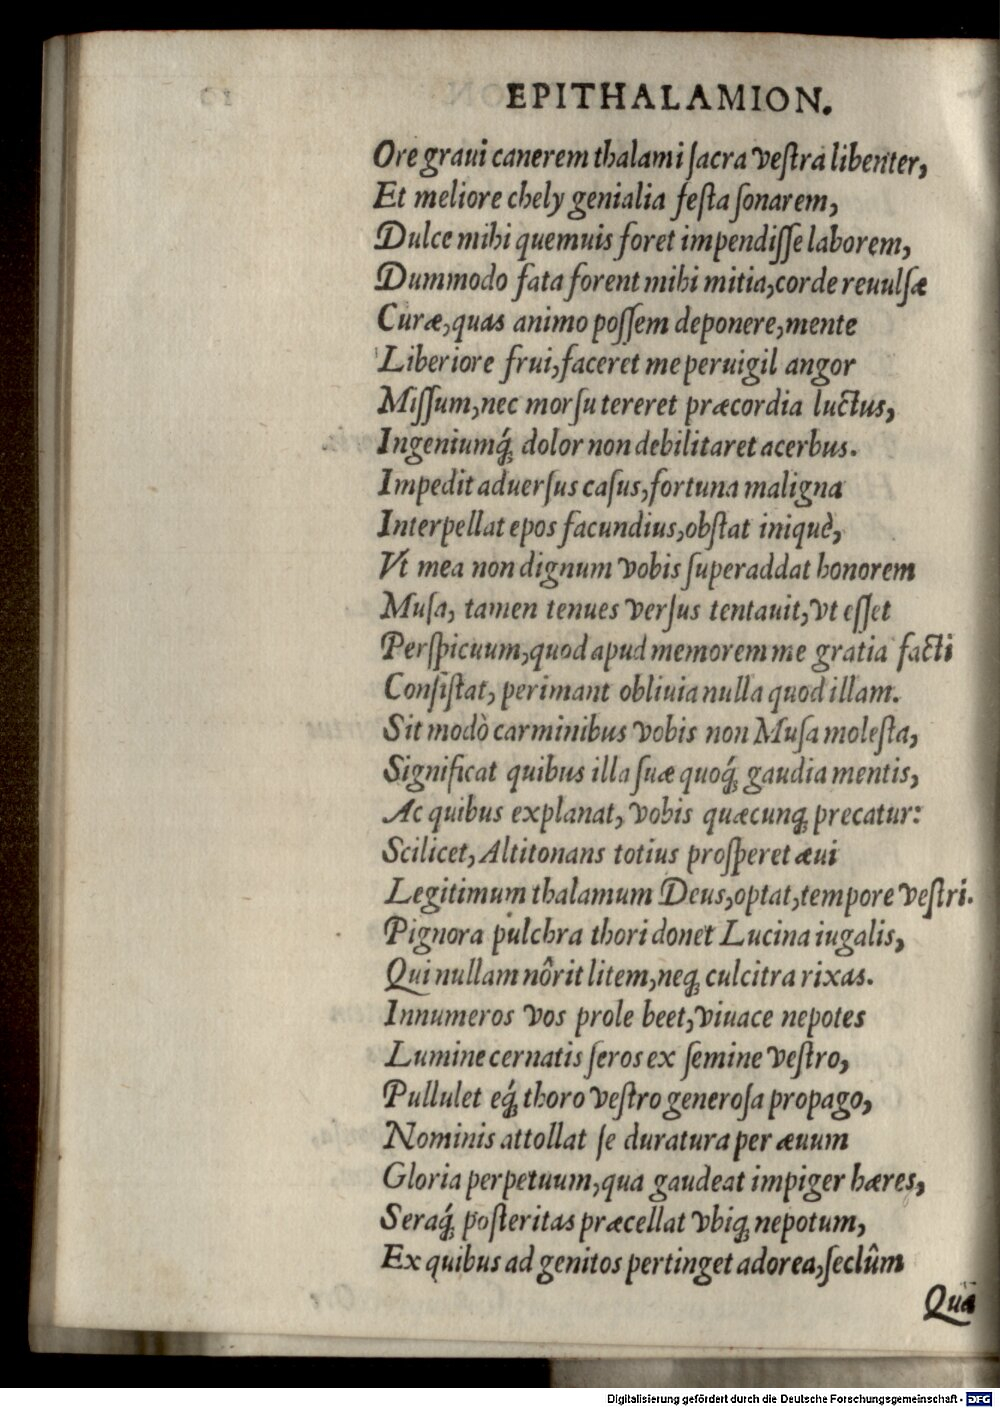 EPITHALAMION.
Ore graui canerem thalami ſacra veſtra libenter,
Et meliore chely genialia feſta ſonarem,
Dulce mihi quemuis foret impendiſſe laborem,
Dummodo fata forent mihi mitia, corde reuulſæ
Curæ, quas animo poſſem deponere, mente
Liberiore frui, faceret me peruigil angor
Miſſum, nec morſu tereret præcordia luctus,
Ingeniumq́; dolor non debilitaret acerbus.
Impedit aduerſus caſus, fortuna maligna
Interpellat epos facundius, obſtat iniquè,
Vt mea non dignum vobis ſuperaddat honorem
Muſa, tamen tenues verſus tentauit, vt eſſet
Perſpicuum, quod apud memorem me gratia facti
Conſiſtat, perimant obliuia nulla quod illam.
Sit modò carminibus vobis non Muſa moleſta,
Significat quibus illa ſuæ quoq́; gaudia mentis,
Ac quibus explanat, vobis quæcunq; precatur:
Scilicet, Altitonans totius proſperet æui
Legitimum thalamum Deus, optat, tempore veſtri.
Pignora pulchra thori donet Lucina iugalis,
Qui nullam nôrit litem, neq; culcitra rixas.
Innumeros vos prole beet, viuace nepotes
Lumine cernatis ſeros ex ſemine veſtro,
Pullulet eq́; thoro veſtro generoſa propago,
Nominis attollat ſe duratura per æuum
Gloria perpetuum, qua gaudeat impiger hæres,
Seraq́; poſteritas præcellat vbiq; nepotum,
Ex quibus ad genitos pertinget adorea, ſeclûm
Qua
Digitalisierung gefördert durch die Deutsche Forschungsgemeinschaft - DFG